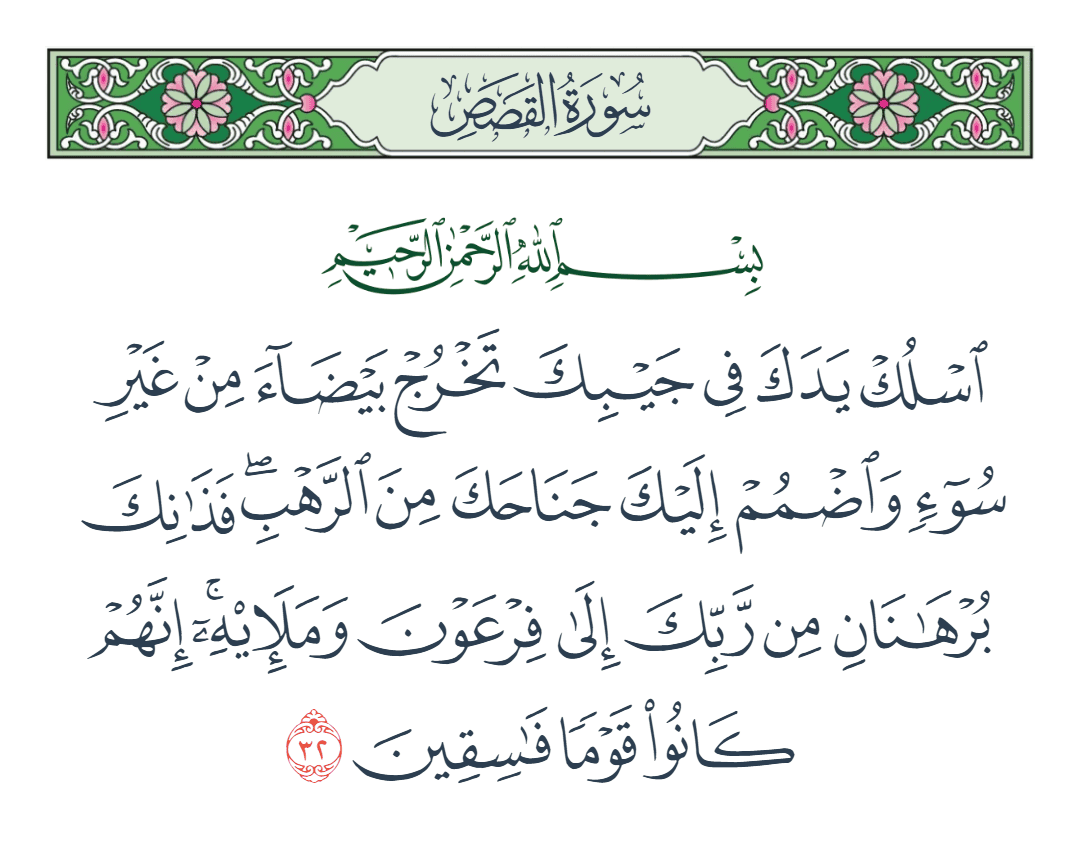 سُورَةُ القَصَصِ
بِسْمِ ٱللَّهِ ٱلرَّحْمَٰنِ ٱلرَّحِيمِ
ٱسْلُكْ يَدَكَ فِى جَيْبِكَ تَخْرُجْ بَيْضَآءَ مِنْ غَيْرِ
سُوٓءٍ وَٱضْمُمْ إِلَيْكَ جَنَاحَكَ مِنَ ٱلرَّهْبِ ۖ فَذَٰنِكَ
بُرْهَـٰنَانِ مِن رَّبِّكَ إِلَىٰ فِرْعَوْنَ وَمَلَإِيْهِۦٓ ۚ إِنَّهُمْ
كَانُوا۟ قَوْمًا فَـٰسِقِينَ ٣٢